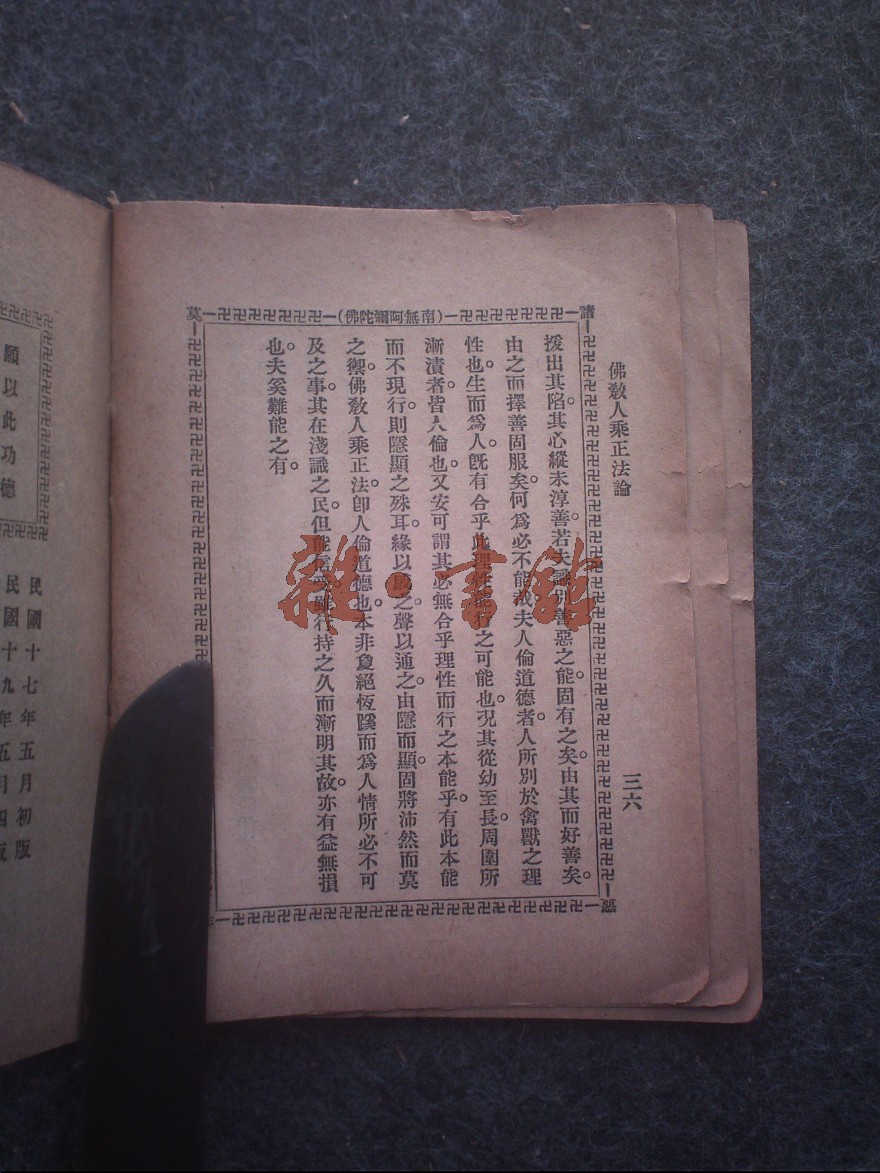 佛敎人乘正法論
三六
諸
惡
莫
(南無阿彌陀佛)
援出其陷。其心縱未淳善。若夫識別善惡之能。固有之矣。由其而好善矣。
由之而擇善固服矣。何爲必不能哉。夫人倫道德者。人所別於禽獸之理
性也。生而爲人。旣有合乎此理性能行之可能也。況其從幼至長。周圍所
漸漬者。皆人倫也。又安可謂其必無合乎理性而行之本能乎。有此本能
而不現行。則隱顯之殊耳。緣以感之。聲以通之。由隱而顯。固將沛然而莫
之禦。佛敎人乘正法。卽人倫道德也。本非敻絕恆蹊而爲人情所必不可
及之事。其在淺識之民。但能信受。雖行持之久而漸明其故。亦有益無損
也。夫奚難能之有。
願以此功德
民國十七年五月初版
民國十九年五月四版
雜·書館